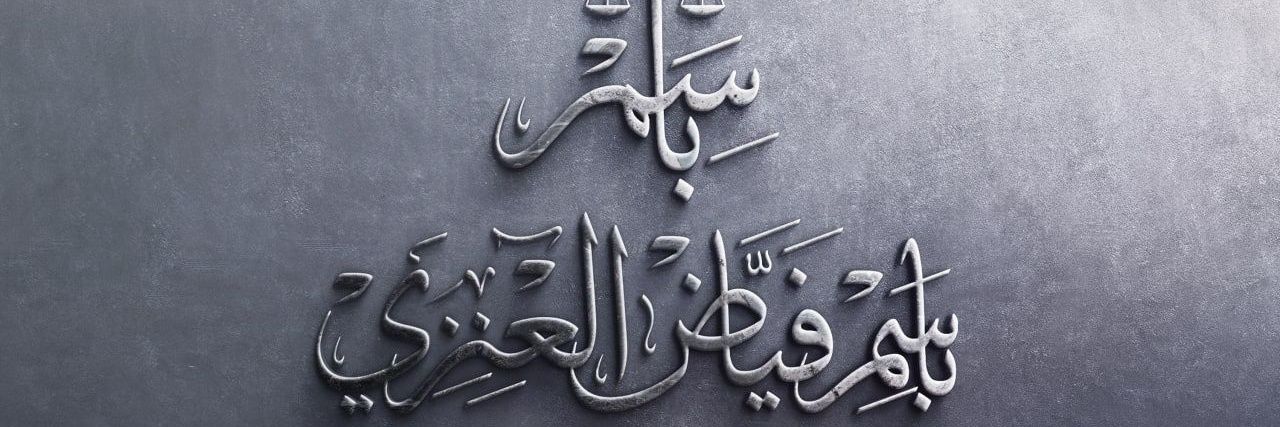 باسم
باسم فيّاض العنزي